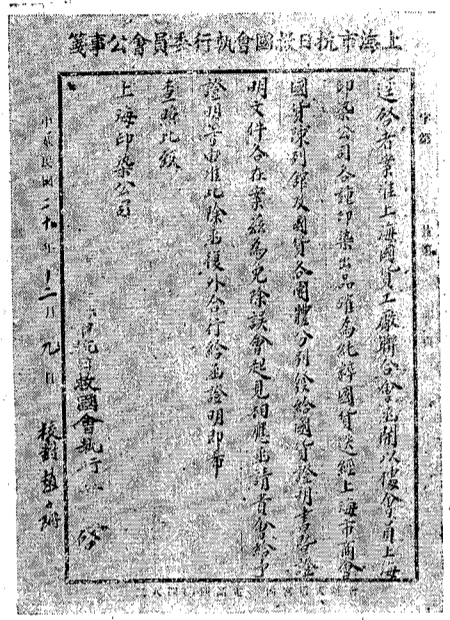 上海市抗日救國會執行委員會公事箋
字第
逕啟者案准上海國貨工廠聯合會函開以據會員上海
印染公司各種印染出品確為純粹國貨迭經上海市商會
國貨陳列館及國貨各團體分別給國貨證明書等證
明文件各在案茲為免除誤會起見相應函請貴會給予
證明等由准此除函復外合行給函證明即希
查照此致
上海印染公司
市抗日救國會執行 啓
中華民國二十年十二月九日
校對趙